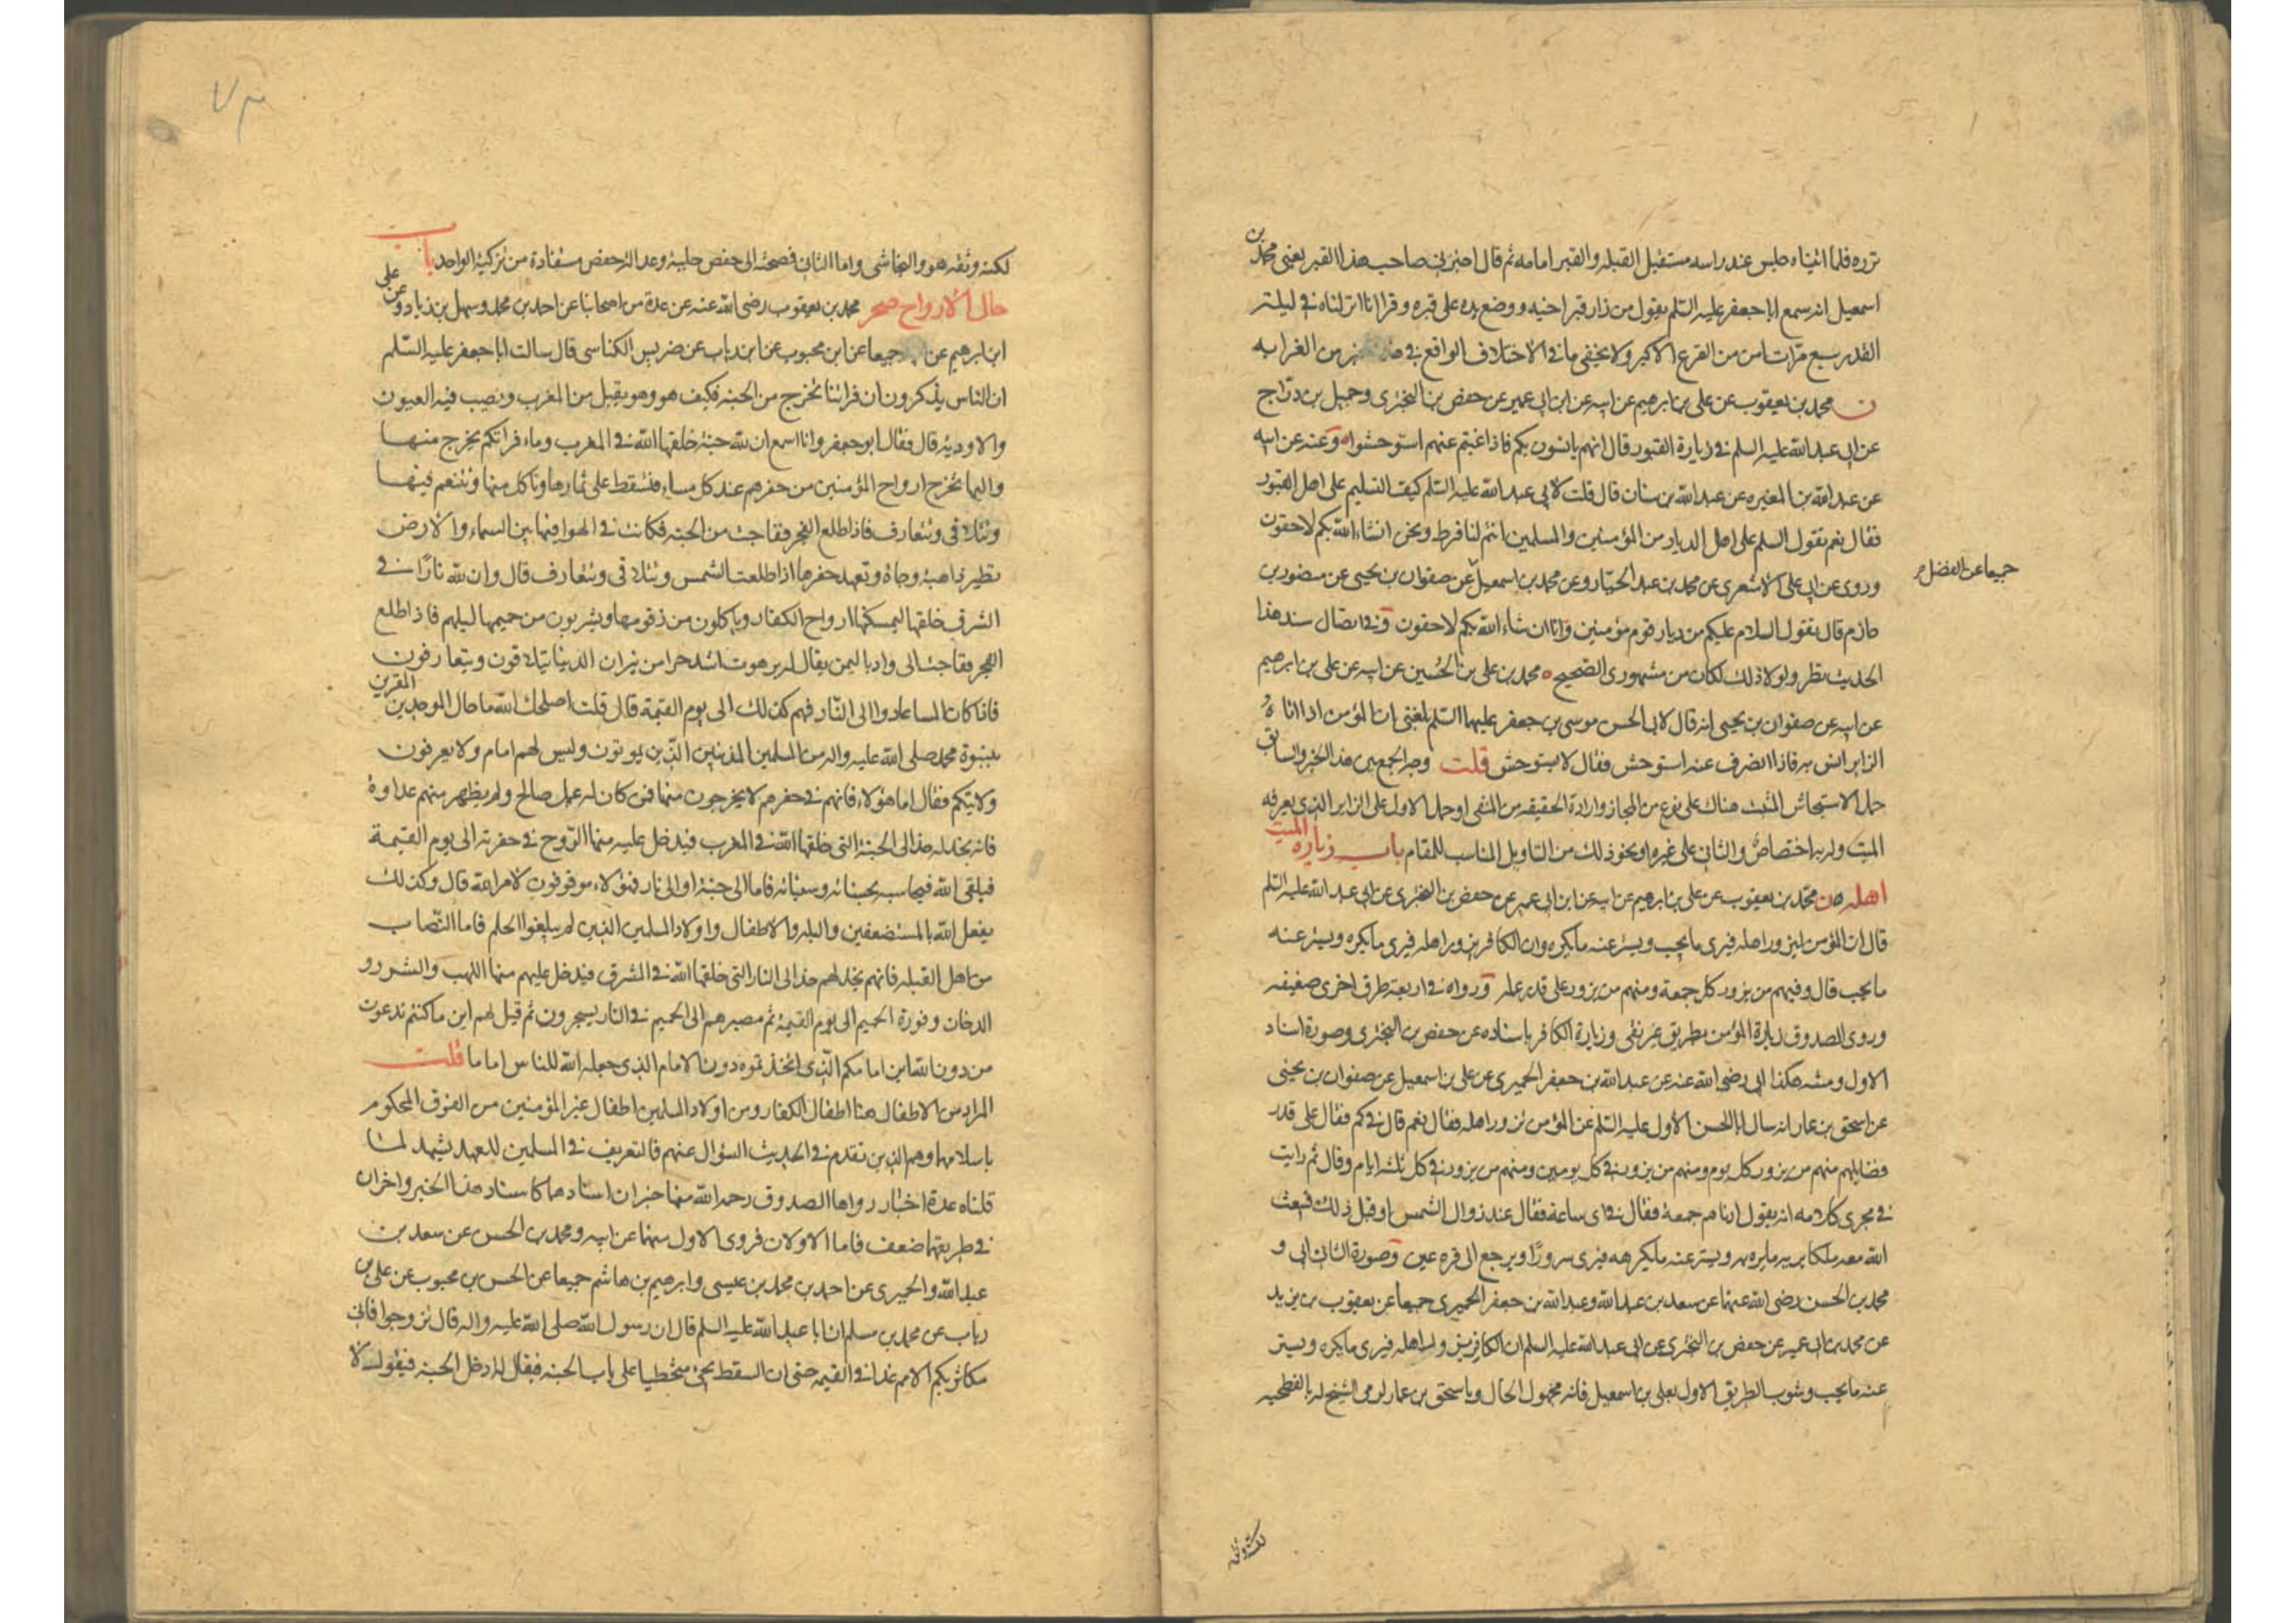 تزره فلما اتيناه جلس عند راسه مستقبل القبلة والقبر امامه ثم قال اخبرني صاحب هذا القبر يعني محمد بن
اسمعيل انه سمع ابا جعفر عليه السلم يقول من زار قبر اخيه ووضع يده على قبره وقرا انا انزلناه في ليلة
القدر سبع مرات امن من الفزع الاكبر ولا يخفى ما في الاختلاف الواقع في من الغرابه
ن محمد بن يعقوب عن علي بن ابرهيم عن ابيه عن ابن ابي عمير عن حفص بن البختري وجميل بن دراج
عن ابي عبد الله عليه السلم في زيارة القبور قال انهم يانسون بكم فاذا غبتم عنهم استوحشوا وعنه عن ابيه
عن عبد الله بن المغيره عن عبد الله بن سنان قال قلت لابي عبد الله عليه السلم كيف التسليم على اهل القبور
فقال نعم يقول السلم على اهل الديار من المؤمنين والمسلمين انتم لنا فرط ونحن انشاء الله بكم لاحقون
وروى عن ابي علي الاشعري عن محمد بن عبد الجبار وعن محمد بن اسمعيل عن صفوان بن يحيى عن منصور بن
جميعا عن الفضل
حازم قال تقول السلام عليكم من ديار قوم مؤمنين وانا ان شاء الله بكم لاحقون وفي اتصال سند هذا
الحديث نظر ولولا ذلك لكان من مشهوري الصحيح محمد بن علي بن الحسين عن ابيه عن علي بن ابرهيم
عن ابيه عن صفوان بن يحيى انه قال لابي الحسن موسى بن جعفر عليهما السلم بلغني ان المؤمن اذا اتاه
الزاير انس به فاذا انصرف عنه استوحش فقال لا يستوحش قلت وجه الجمع بين هذا الخبر والسابق
حمل الاستيحاش المثبت هناك على نوع من المجاز وارادة الحقيقه من المنفى او حمل الاول على الزاير الذي يعرفه
الميت وله به اختصاص والثاني على غيره او نحو ذلك من التاويل المناسب للمقام باب زيارة الميت
اهله صن محمد بن يعقوب عن علي بن ابرهيم عن ابيه عن ابن ابي عمير عن حفص بن البختري عن ابي عبد الله عليه السلم
قال ان المؤمن ليزور اهله فيرى ما يحب ويستر عنه ما يكره وان الكافر يزور اهله فيرى ما يكره ويستر عنه
ما يحب قال وفيهم من يزور كل جمعة ومنهم من يزور على قدر عمله ورواه في اربعة طرق اخرى ضعيفه
وروى الصدوق زيارة المؤمن بطريق غير نقي وزيارة الكافر باسناده عن حفص بن البختري وصورة اسناد
الاول ومتنه هكذا ابي رضي الله عنه عن عبد الله بن جعفر الحميري عن علي بن اسمعيل عن صفوان بن يحيى
عن اسحق بن عمار انه سال ابا الحسن الاول عليه السلم عن المؤمن يزور اهله فقال نعم قال في كم فقال على قدر
فضايلهم منهم من يزور كل يوم ومنهم من يزور في كل يومين ومنهم من يزور في كل ثلثه ايام وقال ثم رايت
في مجرى كلامه انه يقول ادناهم جمعة فقال في اي ساعة فقال عند زوال الشمس او قبل ذلك فيبعث
الله معه ملكا يريه ما يسره ويستر عنه ما يكرهه فيرى سرورا ويرجع الى قرة عين وصورة الثاني ابي و
محمد بن الحسن رضي الله عنهما عن سعد بن عبد الله وعبد الله بن جعفر الحميري جميعا عن يعقوب بن يزيد
عن محمد بن ابي عمير عن حفص بن البختري عن ابي عبد الله عليه السلم ان الكافر يزور اهله فيرى ما يكره ويستر
عنه ما يحب وشوب الطريق الاول بعلي بن اسمعيل فانه مجهول الحال وباسحق بن عمار لرمي الشيخ له بالفطحيه
لكنه وثقه
٧٣
لكنه وثقه هو والنجاشي واما الثاني فصحته الى حفص جلية وعدالة حفص مستفادة من تزكية الواحد باب
حال الارواح صحر محمد بن يعقوب رضي الله عنه عن عدة من اصحابنا عن احمد بن محمد وسهل بن زياد وعن علي
ابن ابرهيم عن جميعا عن ابن محبوب عن ابن رياب عن ضريس الكناسي قال سالت ابا جعفر عليه السلم
ان الناس يذكرون ان فراتنا تخرج من الجنة فكيف هو وهو يقبل من المغرب وتصب فيه العيون
والاودية قال فقال ابو جعفر وانا اسمع ان لله جنة خلقها الله في المغرب وماء فراتكم يخرج منها
واليها تخرج ارواح المؤمنين من حفرهم عند كل مساء فتسقط على ثمارها وتاكل منها وتتنعم فيها
وتتلاقى وتتعارف فاذا طلع الفجر هاجت من الجنة فكانت في الهوا فيما بين السماء والارض
تطير ذاهبة وجاءة وتعهد حفرها اذا طلعت الشمس وتتلاقى وتتعارف قال وان لله نارا في
الشرق خلقها ليسكنها ارواح الكفار وياكلون من زقومها ويشربون من حميمها ليلهم فاذا طلع
الفجر هاجت الى واد باليمن يقال له برهوت اشد حرا من نيران الدنيا يتلاقون ويتعارفون
فاذا كان المسا عادوا الى النار فهم كذلك الى يوم القيمة قال قلت اصلحك الله ما حال الموحدين المقرين
بنبوة محمد صلى الله عليه واله من المسلمين المذنبين الذين يموتون وليس لهم امام ولا يعرفون
ولايتكم فقال اما هؤلاء فانهم في حفرهم لا يخرجون منها فمن كان له عمل صالح ولم يظهر منهم عداوة
فانه يخد له خدا الى الجنة التي خلقها الله في المغرب فيدخل عليه منها الروح في حفرته الى يوم القيمة
فيلقى الله فيحاسبه بحسناته وسيئاته فاما الى جنة او الى نار فهؤلاء موقوفون لامر الله قال وكذلك
يفعل الله بالمستضعفين والبله والاطفال واولاد المسلمين الذين لم يبلغوا الحلم فاما النصاب
من اهل القبلة فانهم يخد لهم خدا الى النار التي خلقها الله في المشرق فيدخل عليهم منها اللهب والشرر و
الدخان وفورة الحميم الى يوم القيمة ثم مصيرهم الى الحميم في النار يسجرون ثم قيل لهم اين ما كنتم تدعون
من دون الله اين امامكم الذي اتخذتموه دون الامام الذي جعله الله للناس اماما قلت
المراد من الاطفال هنا اطفال الكفار ومن اولاد المسلمين اطفال غير المؤمنين من الفرق المحكوم
باسلامها وهم الذين تقدم في الحديث السؤال عنهم فالتعريف في المسلمين للعهد يشهد لما
قلناه عدة اخبار رواها الصدوق رحمه الله منها خبران اسنادهما كاسناد هذا الخبر واخران
في طريقهما ضعف فاما الاولان فروى الاول منهما عن ابيه ومحمد بن الحسن عن سعد بن
عبد الله والحميري عن احمد بن محمد بن عيسى وابرهيم بن هاشم جميعا عن الحسن بن محبوب عن علي بن
رياب عن محمد بن مسلم ان ابا عبد الله عليه السلم قال ان رسول الله صلى الله عليه واله قال تزوجوا فاني
مكاثر بكم الامم غدا في القيمة حتى ان السقط يجئ محبنطيا على باب الجنة فيقال له ادخل الجنة فيقول لا